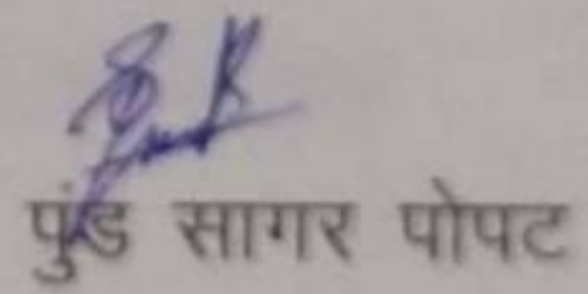 पुंड सागर पोपट